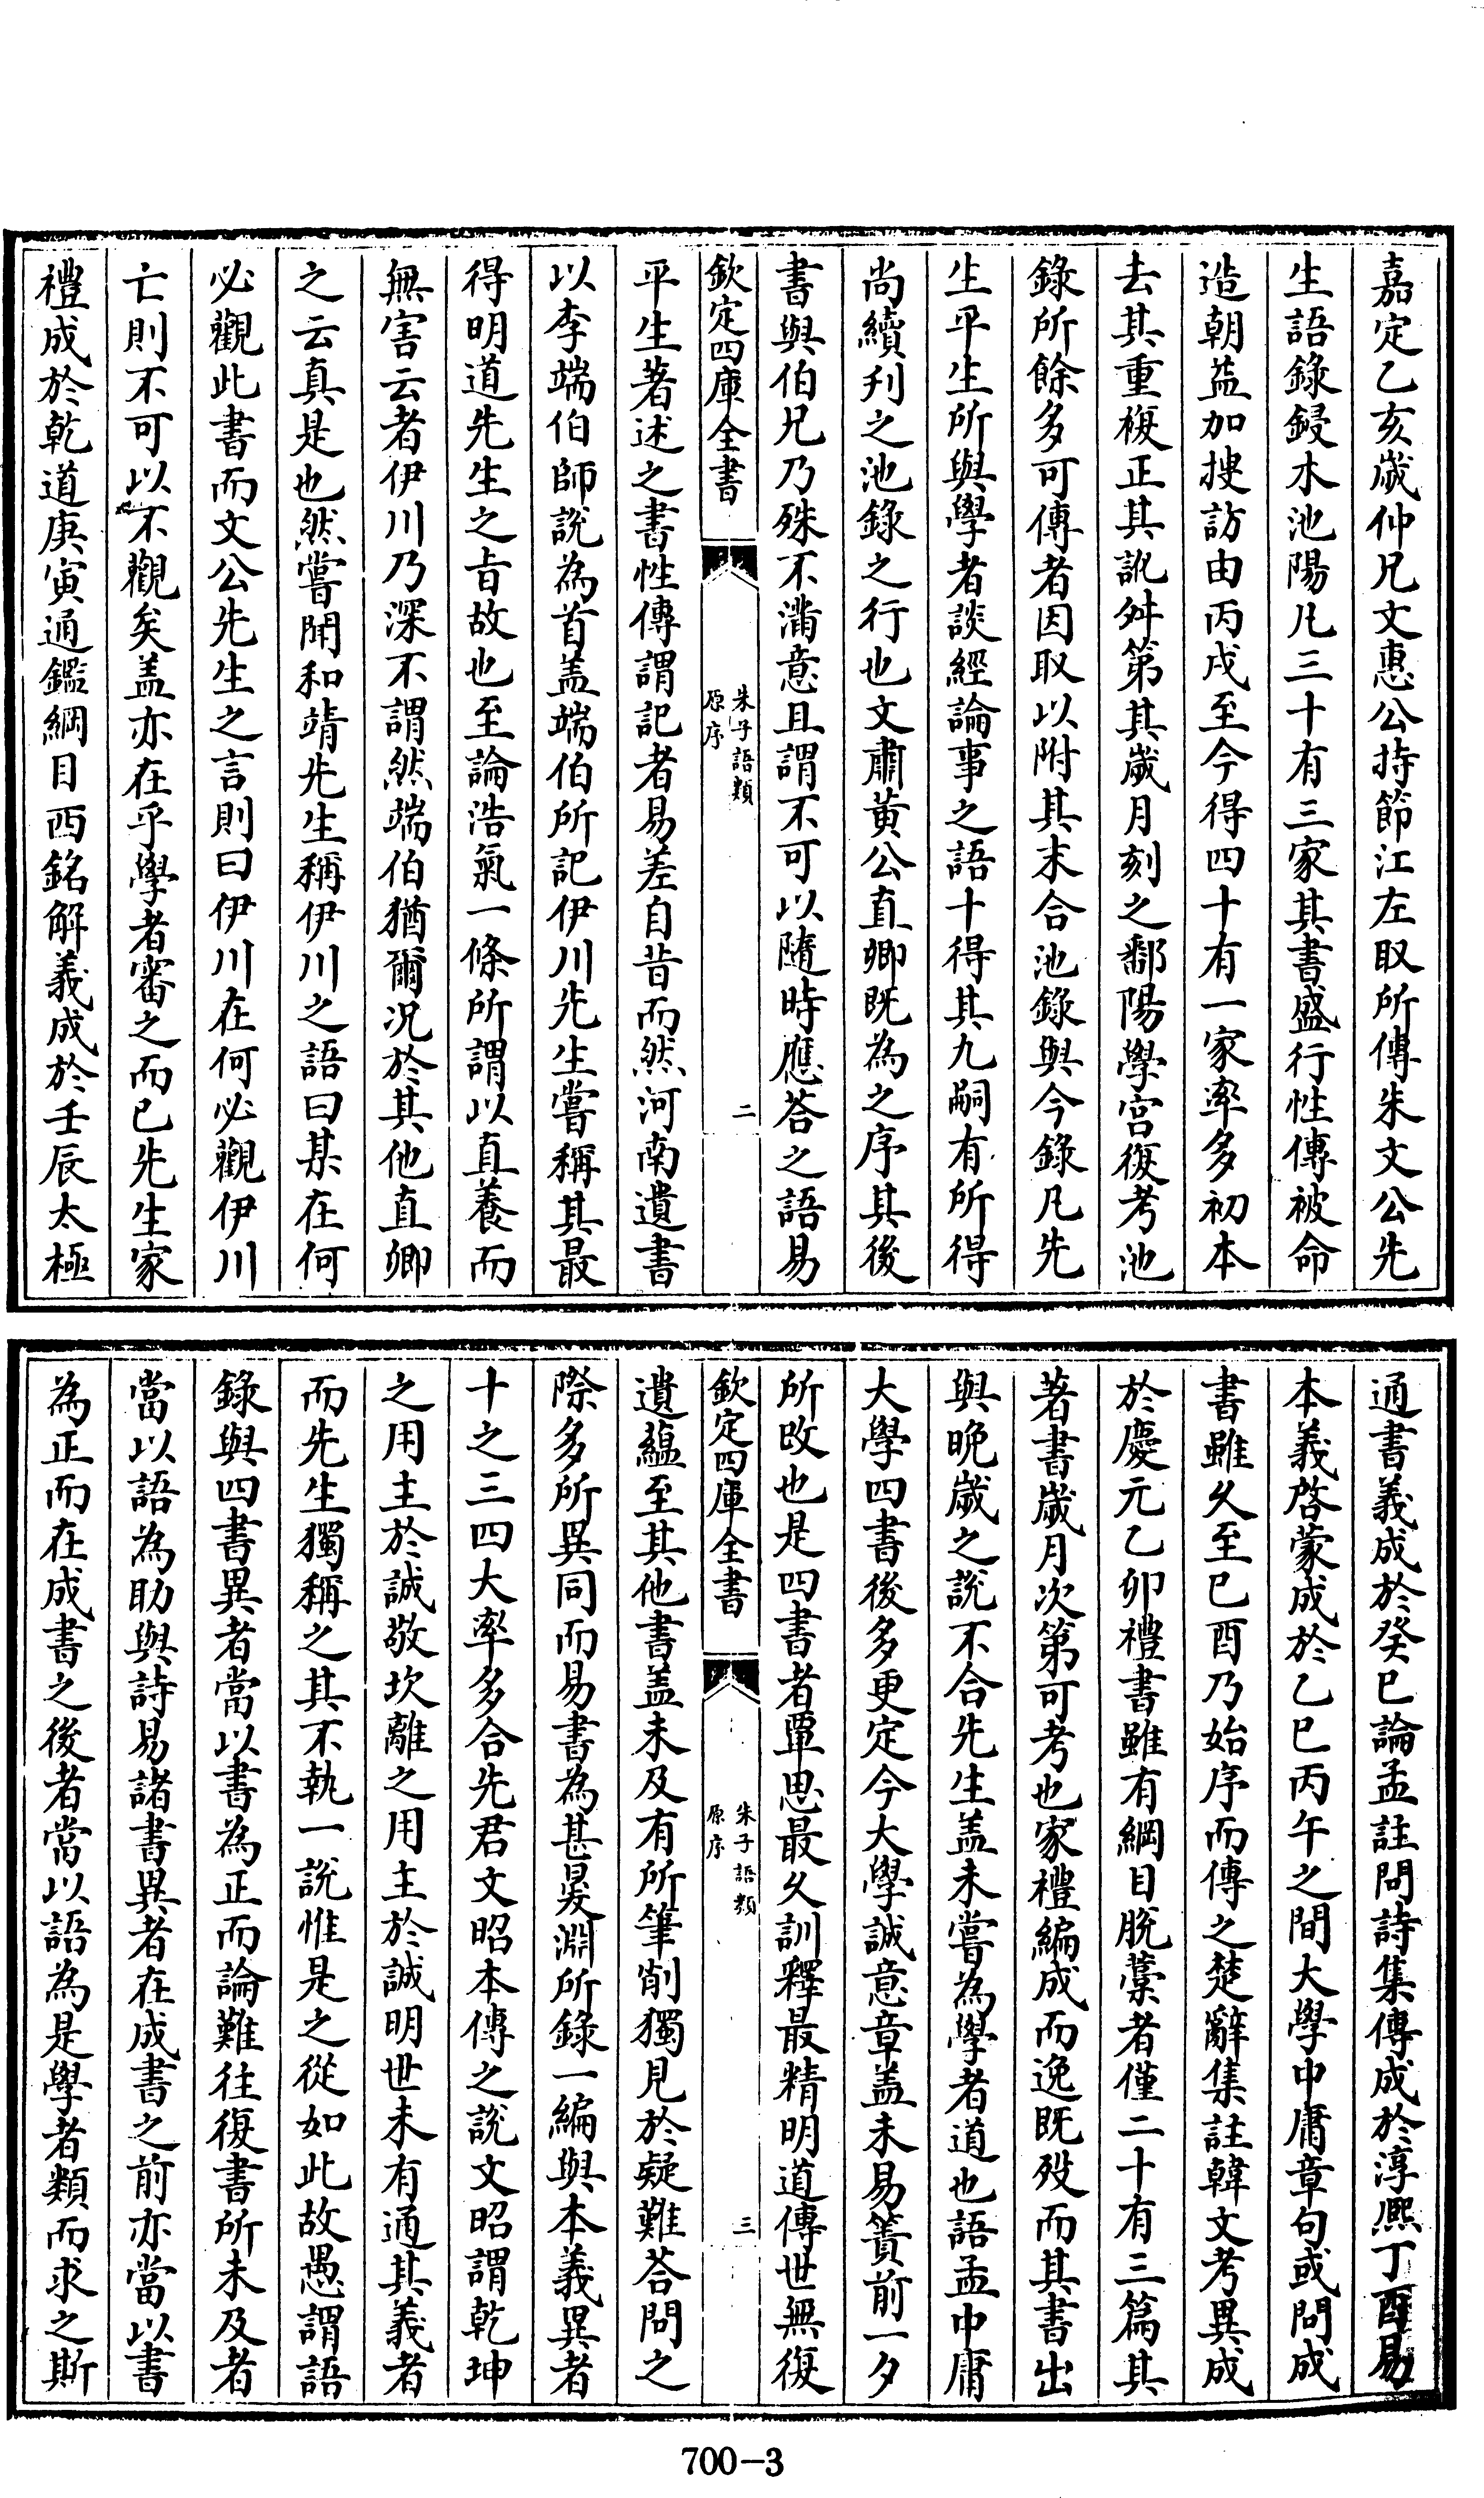 嘉定乙亥歲仲兄文惠公持節江左取所傳朱文公先
生語錄鋟木池陽凡三十有三家其書盛行性傳被命
造朝益加搜訪由丙戌至今得四十有一家率多初本
去其重複正其訛舛第其歲月刻之鄱陽學宮復考池
錄所餘多可傳者因取以附其末合池錄與今錄凡先
生平生所與學者談經論事之語十得其九嗣有所得
尚續刋之池錄之行也文肅黃公直卿既為之序其後
書與伯兄乃殊不滿意且謂不可以隨時應荅之語易
欽定四庫全書
朱子語類
原序
二
平生著述之書性傳謂記者易差自昔而然河南遺書
以李端伯師說為首盖端伯所記伊川先生嘗稱其最
得明道先生之旨故也至論浩氣一條所謂以直養而
無害云者伊川乃深不謂然端伯猶爾况於其他直卿
之云真是也然嘗聞和靖先生稱伊川之語曰某在何
必觀此書而文公先生之言則曰伊川在何必觀伊川
亡則不可以不觀矣盖亦在乎學者審之而已先生家
禮成於乾道庚寅通鑑綱目西銘解義成於壬辰太極
通書義成於癸巳論孟註問詩集傳成於淳熙丁酉易
本義啓蒙成於乙巳丙午之間大學中庸章句或問成
書雖久至己酉乃始序而傳之楚辭集註韓文考異成
於慶元乙卯禮書雖有綱目脫藁者僅二十有三篇其
著書歲月次第可考也家禮編成而逸既殁而其書出
與晚歲之說不合先生盖未嘗為學者道也語孟中庸
大學四書後多更定今大學誠意章盖未易簀前一夕
所改也是四書者覃思最久訓釋最精明道傳世無復
欽定四庫全書
朱子語類
原序
三
遺蘊至其他書盖未及有所筆削獨見於疑難荅問之
際多所異同而易書為甚晏淵所錄一編與本義異者
十之三四大率多合先君文昭本傳之說文昭謂乾坤
之用主於誠敬坎離之用主於誠明世未有通其義者
而先生獨稱之其不執一說惟是之從如此故愚謂語
錄與四書異者當以書為正而論難往復書所未及者
當以語為助與詩易諸書異者在成書之前亦當以書
為正而在成書之後者當以語為是學者類而求之斯
700-3